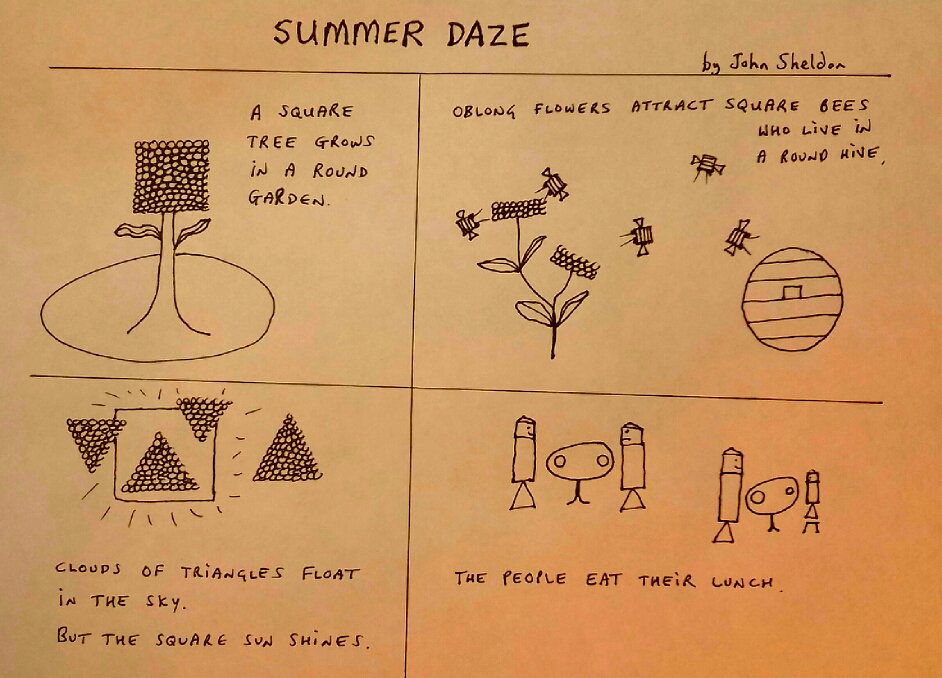 SUMMER DAZE
by John Sheldon
A SQUARE
TREE GROWS
IN A ROUND
GARDEN.
OBLONG FLOWERS ATTRACT SQUARE BEES
WHO LIVE IN
A ROUND HIVE.
CLOUDS OF TRIANGLES FLOAT
IN THE SKY.
BUT THE SQUARE SUN SHINES.
THE PEOPLE EAT THEIR LUNCH.